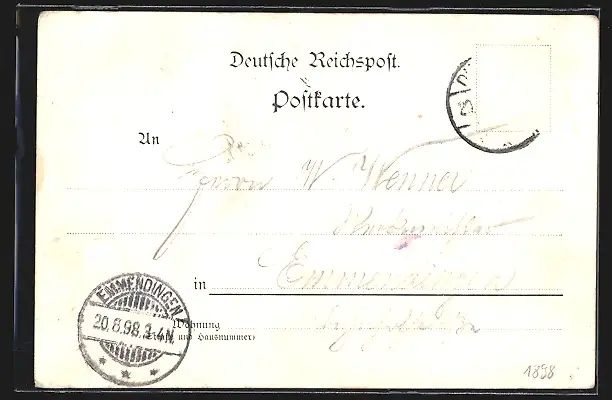 Deutsche Reichspost.
Postkarte.
An
Herrn W. Wenner
in Emmendingen
EMMENDINGEN
20.8.98.3-4N.
Wohnung
(Straße und Hausnummer)
1898